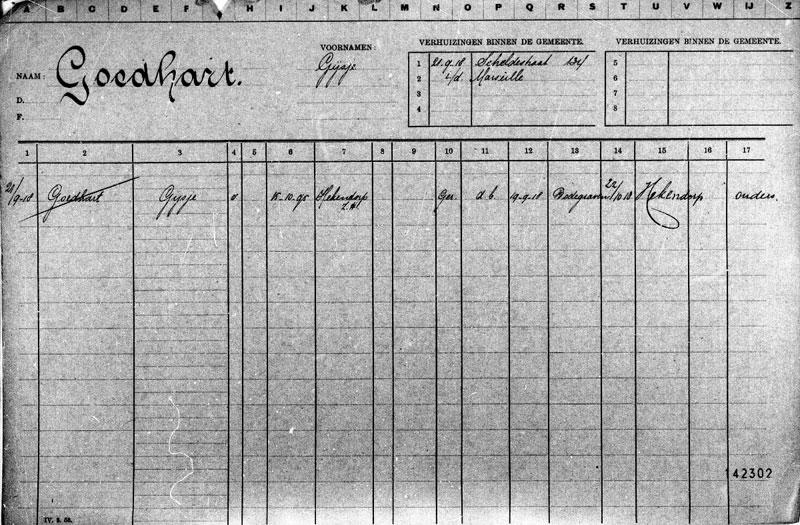 A B C D E F H I J K L M N O P Q R S T U V W IJ Z
NAAM: Goedhart.
D.
F.
VOORNAMEN:
Gijsje
VERHUIZINGEN BINNEN DE GEMEENTE.
1 21-9-18 Scheldestraat 134
2 Marseille
3
4
VERHUIZINGEN BINNEN DE GEMEENTE.
5
6
7
8
1 2 3 4 5 6 7 8 9 10 11 12 13 14 15 16 17
21/9-18 Goedhart Gijsje v 15-10-95 Hekendorp Z.H. Ger. d.b. 19-9-18 Bodegraven 22/10 18 Hekendorp ouders.
142302